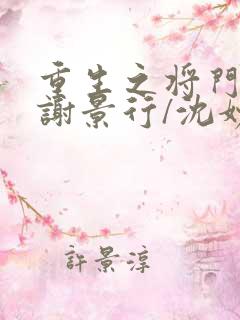 重生之将門
謝景行/沈妙
許景淳